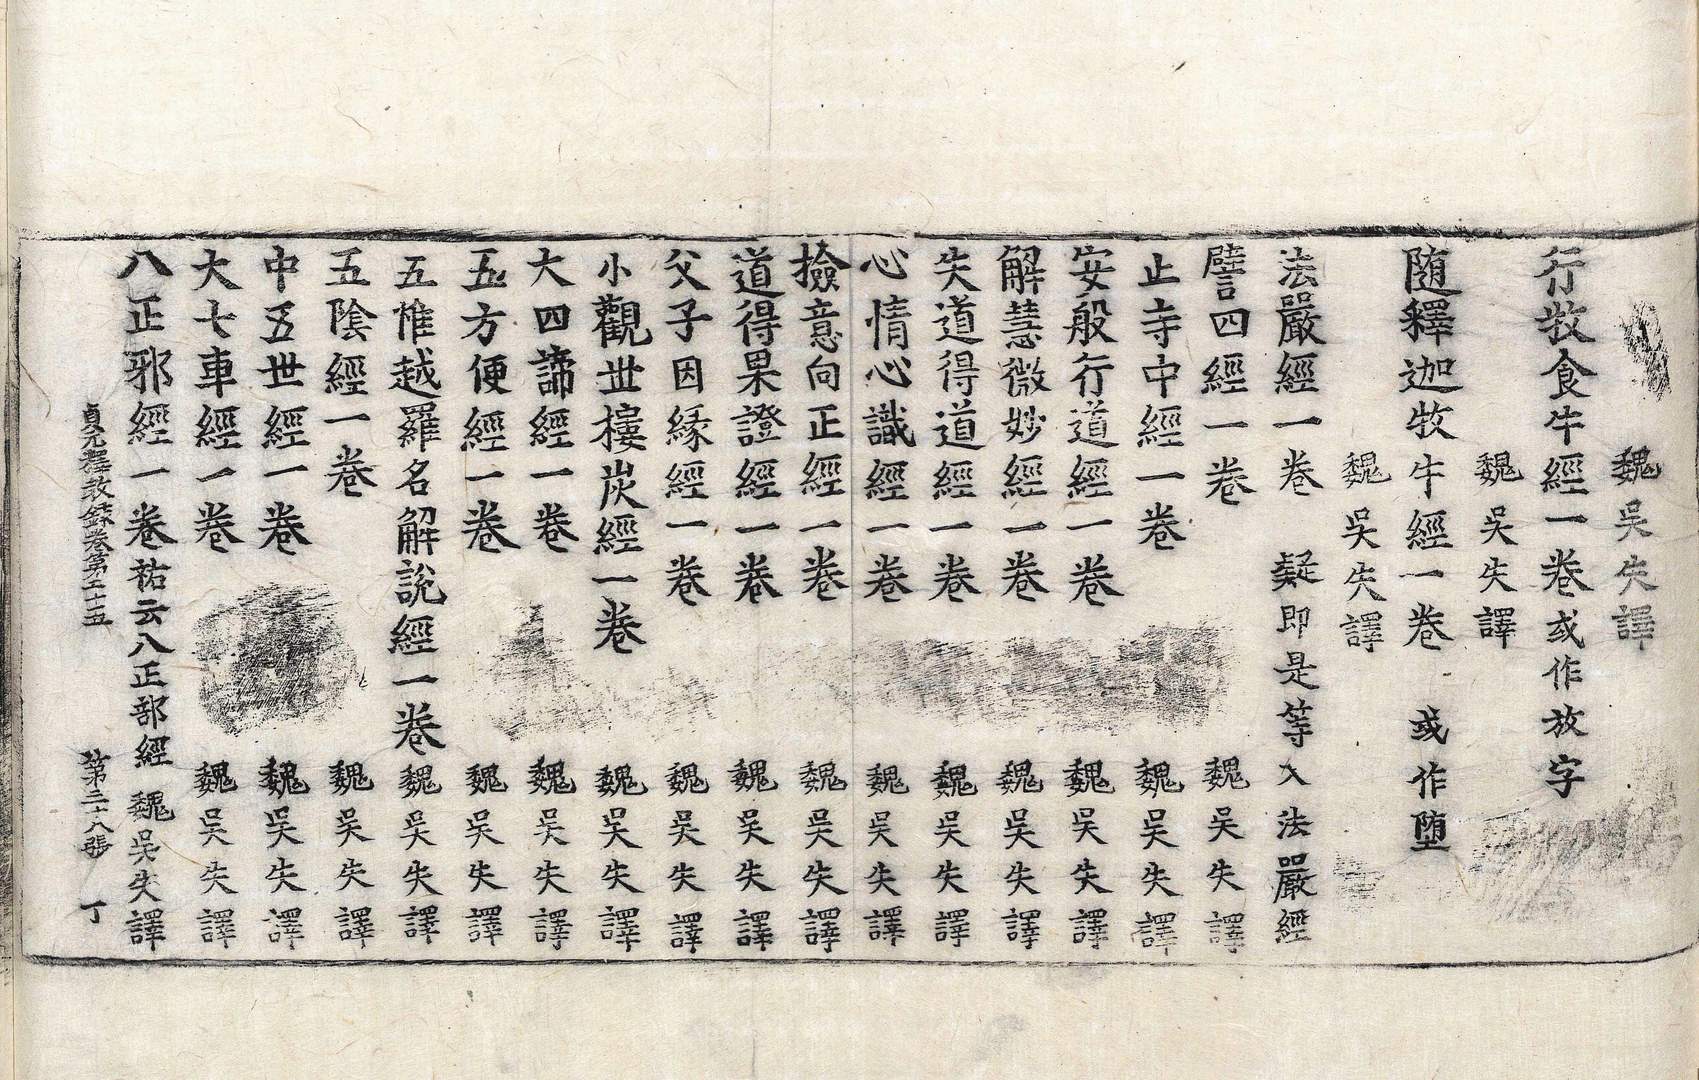 魏吳失譯
行牧食牛經一卷或作放字
魏吳失譯
隨釋迦牧牛經一卷 或作堕
魏吳失譯
法嚴經一卷 疑即是等入法嚴經
譬四經一卷 魏吳失譯
止寺中經一卷 魏吳失譯
安般行道經一卷 魏吳失譯
解慧微妙經一卷 魏吳失譯
失道得道經一卷 魏吳失譯
心情心識經一卷 魏吳失譯
撿意向正經一卷 魏吳失譯
道得果證經一卷 魏吳失譯
父子因緣經一卷 魏吳失譯
小觀世樓炭經一卷 魏吳失譯
大四諦經一卷 魏吳失譯
五方便經一卷 魏吳失譯
五惟越羅名解說經一卷 魏吳失譯
五陰經一卷 魏吳失譯
中五世經一卷 魏吳失譯
大七車經一卷 魏吳失譯
八正邪經一卷祐云八正部經 魏吳失譯
貞元釋教錄卷第二十五 第二十八張 丁